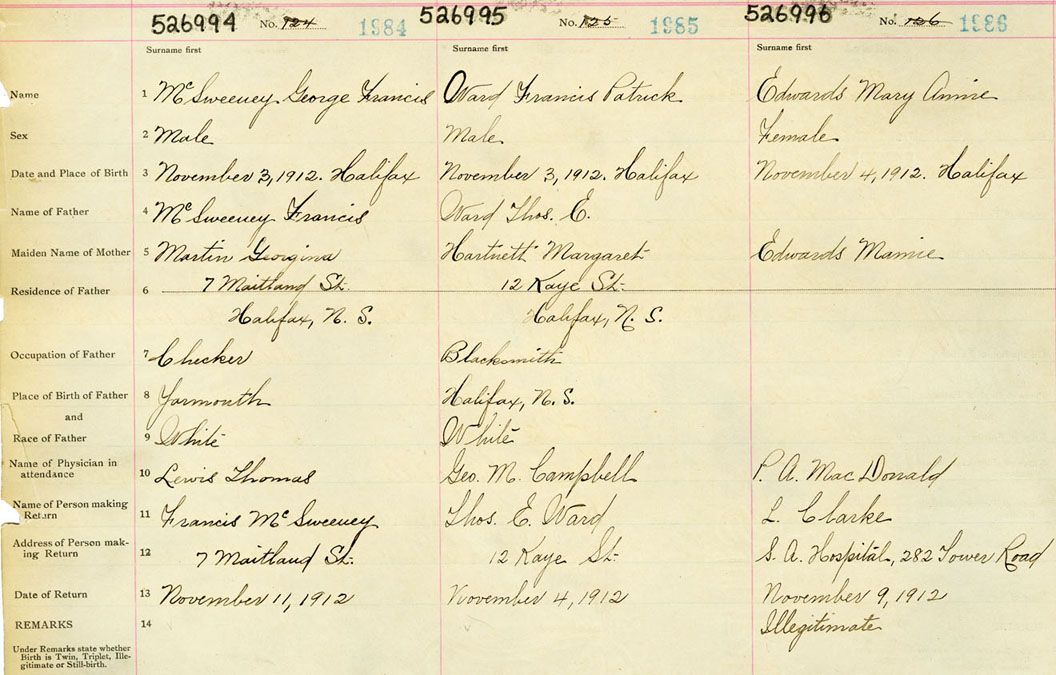 526994 No. 124 1984 526995 No. 125 1985 526996 No. 126 1986
Surname first Surname first Surname first
Name 1 McSweeney George Francis Ward Francis Patrick Edwards Mary Annie
Sex 2 Male Male Female
Date and Place of Birth 3 November 3, 1912. Halifax November 3, 1912. Halifax November 4, 1912. Halifax
Name of Father 4 McSweeney Francis Ward Thos. E.
Maiden Name of Mother 5 Martin Georgina Hartnett Margaret Edwards Mamie
Residence of Father 6 7 Maitland St. 12 Kaye St.
Halifax, N. S. Halifax, N. S.
Occupation of Father 7 Checker Blacksmith
Place of Birth of Father 8 Yarmouth Halifax, N. S.
and
Race of Father 9 White White
Name of Physician in attendance 10 Lewis Thomas Geo. M. Campbell P. A. MacDonald
Name of Person making Return 11 Francis McSweeney Thos. E. Ward L. Clarke
Address of Person mak-
ing Return 12 7 Maitland St. 12 Kaye St. S. A. Hospital, 282 Tower Road
Date of Return 13 November 11, 1912 November 4, 1912 November 9, 1912
REMARKS 14 Illegitimate
Under Remarks state whether
Birth is Twin, Triplet, Ille-
gitimate or Still-birth.